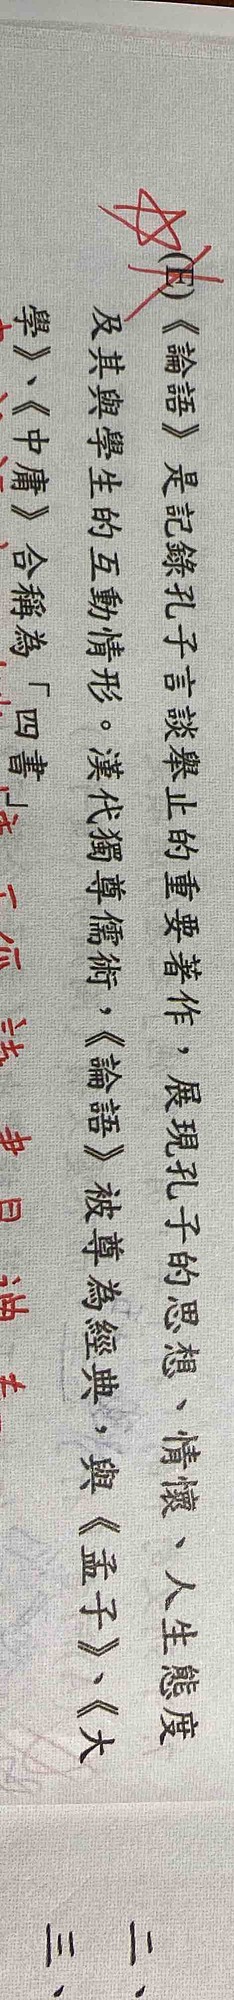 (E)《論語》是記錄孔子言談舉止的重要著作，展現孔子的思想、情懷、人生態度
及其與學生的互動情形。漢代獨尊儒術，《論語》被尊為經典，與《孟子》、《大
學》、《中庸》合稱為「四書」
二、
三、